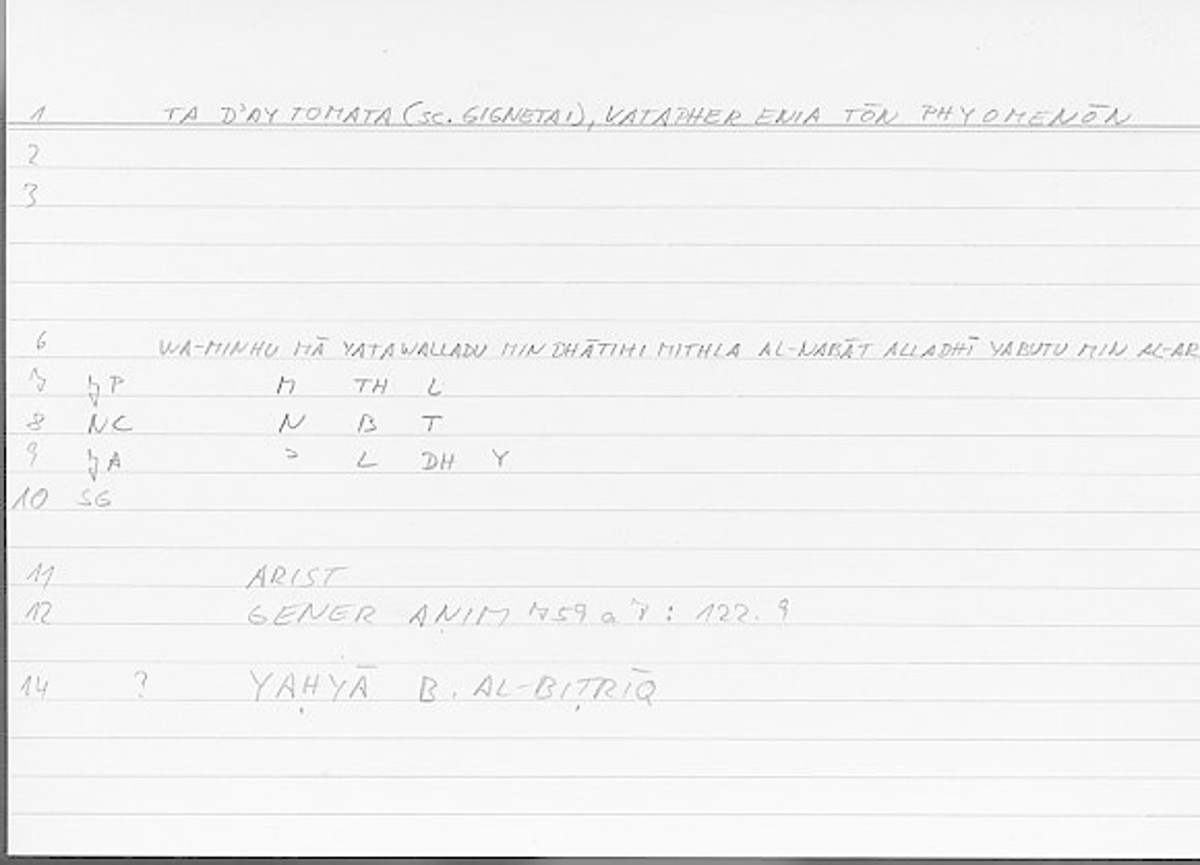 1 TA D'AY TOMATA (SC. GIGNETAI), KATAPHER ENIA TŌN PHYOMENŌN
2
3
6 WA-MINHU MĀ YATAWALLADU MIN DHĀTIHI MITHLA AL-NABĀT ALLADHĪ YABUTU MIN AL-AR
7 JP M TH L
8 NC N B T
9 JA ʾ L DH Y
10 SG
11 ARIST
12 GENER ANIM 759 a 7 : 122. 9
14 ? YAḤYĀ B. AL-BIṬRĪQ